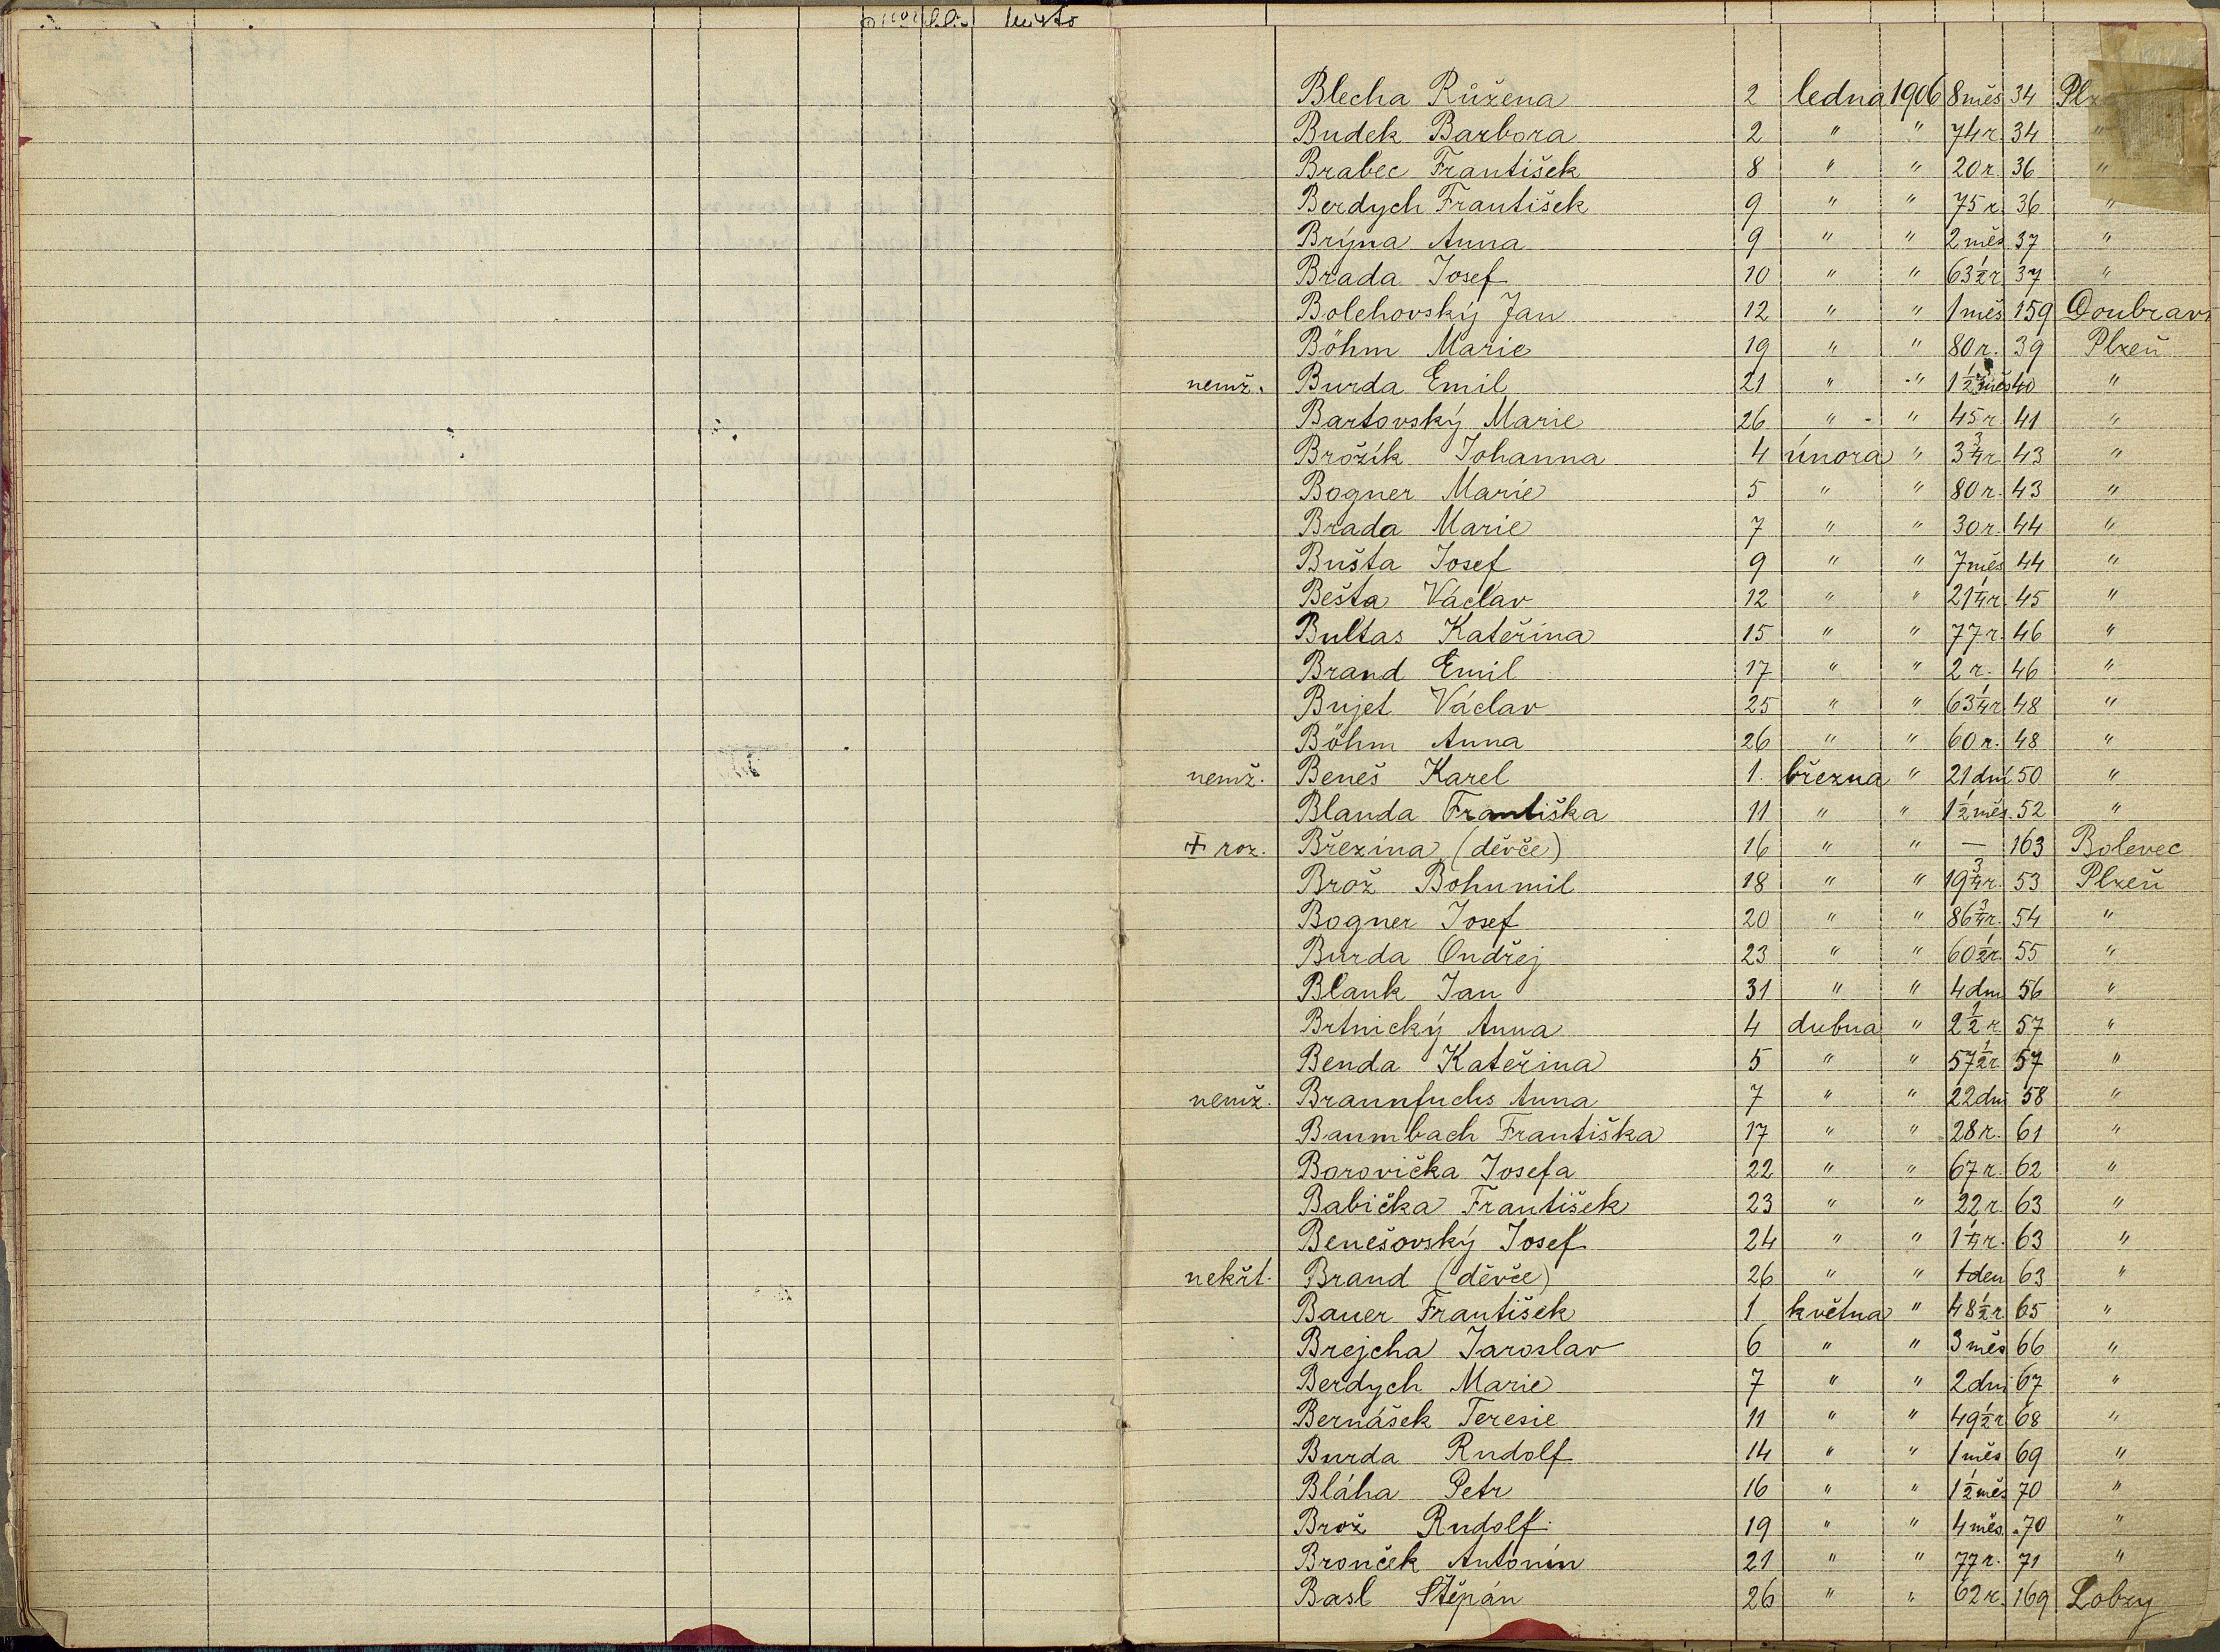 místo
Blecha Růžena 2 ledna 1906 8 měs 34
Budek Barbora 2 " " 74 r. 34 "
Brabec František 8 " " 20 r. 36 "
Berdych František 9 " " 75 r. 36 "
Brýna Anna 9 " " 2 měs 37 "
Brada Josef 10 " " 63 1/2 r 37 "
Bolehovský Jan 12 " " 1 měs 159 Doubrav
Böhm Marie 19 " " 80 r. 39 Plzeň
nemž. Burda Emil 21 " " 40 "
Bartovský Marie 26 " " 45 r. 41 "
Brožík Johanna 4 února " 3 3/4 r. 43 "
Bogner Marie 5 " " 80 r. 43 "
Brada Marie 7 " " 30 r. 44 "
Bušta Josef 9 " " 7 měs 44 "
Bešta Václav 12 " " 21 1/4 r. 45 "
Bultas Kateřina 15 " " 77 r. 46 "
Brand Emil 17 " " 2 r. 46 "
Bujet Václav 25 " " 63 1/4 r. 48 "
Böhm Anna 26 " " 60 r. 48 "
nemž. Beneš Karel 1. března " 21 dní 50 "
Blanda Františka 11 " " 1 1/2 měs. 52 "
† roz. Březina (děvče) 16 " " — 163 Bolevec
Brož Bohumil 18 " " 19 3/4 r. 53 Plzeň
Bogner Josef 20 " " 86 3/4 r. 54 "
Burda Ondřej 23 " " 60 1/2 r. 55 "
Blank Jan 31 " " 4 dni 56 "
Brtnický Anna 4 dubna " 2 1/2 r. 57 "
Benda Kateřina 5 " " 57 1/2 r. 57 "
nemž. Braunfuchs Anna 7 " " 22 dni 58 "
Baumbach Františka 17 " " 28 r. 61 "
Borovička Josefa 22 " " 67 r. 62 "
Babička František 23 " " 22 r. 63 "
Benešovský Josef 24 " " 1 1/4 r. 63 "
nekřt. Brand (děvče) 26 " " 1 den 63 "
Bauer František 1 května " 48 1/2 r 65 "
Brejcha Jaroslav 6 " " 3 měs 66 "
Berdych Marie 7 " " 2 dni 67 "
Bernášek Teresie 11 " " 49 1/2 r 68 "
Burda Rudolf 14 " " 1 měs 69 "
Bláha Petr 16 " " 1 1/2 měs 70 "
Brož Rudolf 19 " " 4 měs. 70 "
Bronček Antonín 21 " " 77 r. 71 "
Basl Štěpán 26 " " 62 r. 169 Lobzy